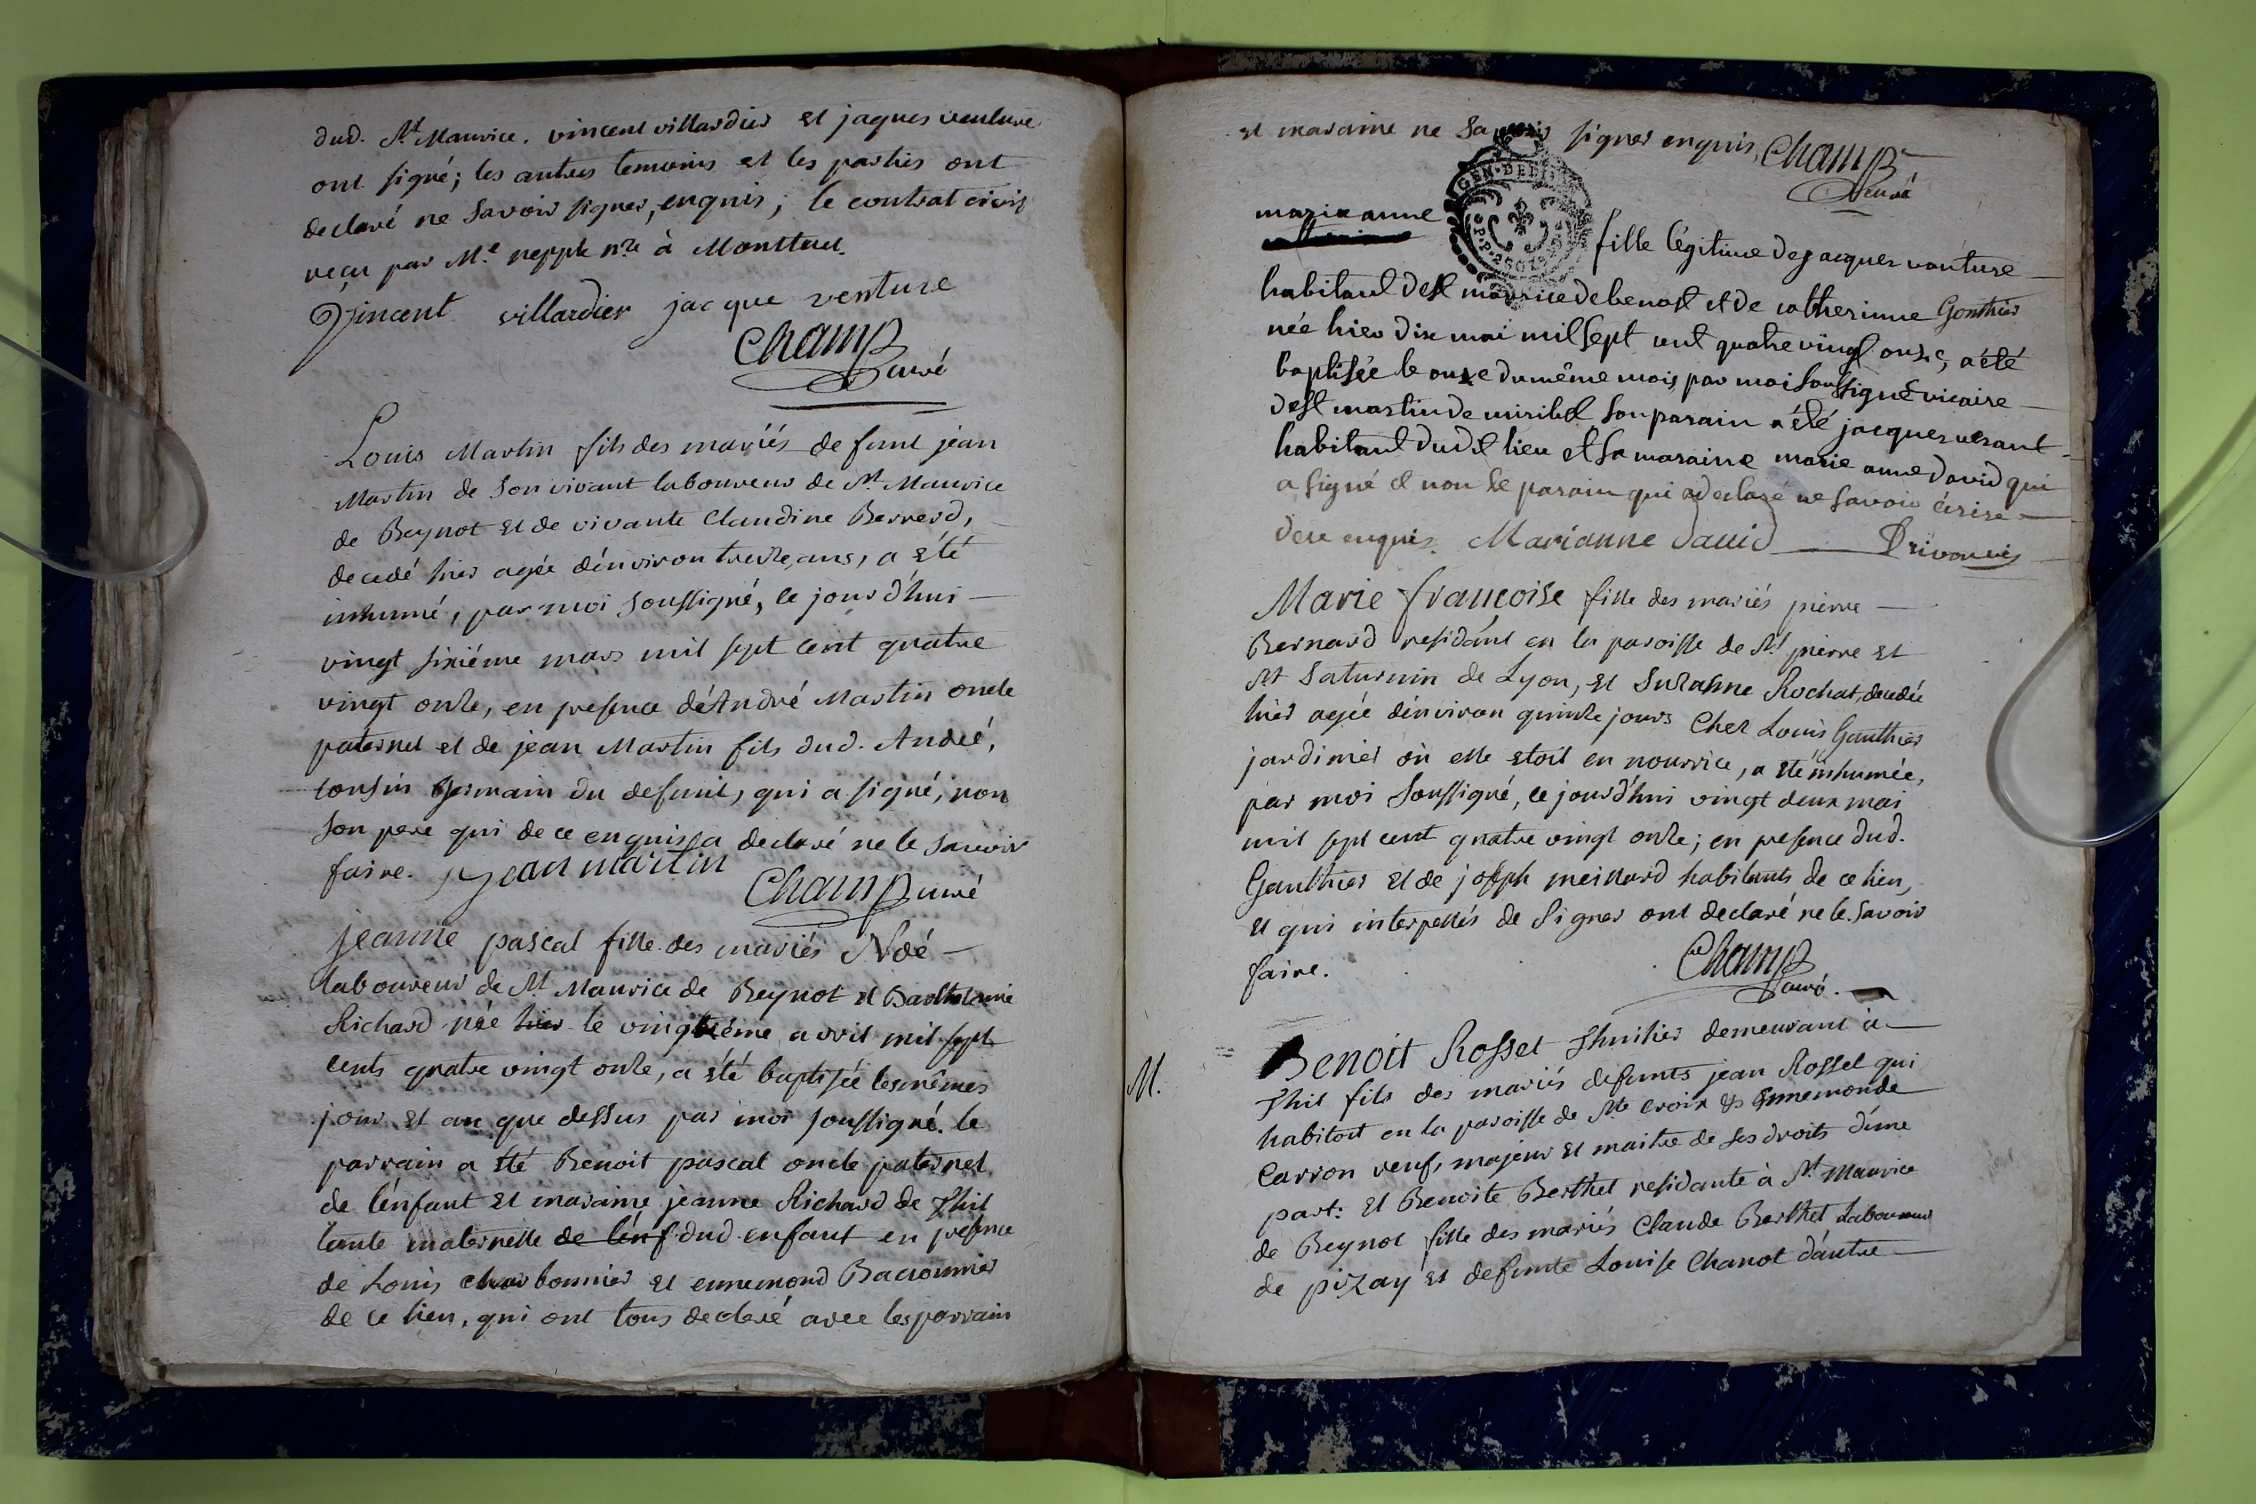 dud. St Maurice. vincent villardier et jaques venture
ont signé; les autres temoins et les parties ont
declaré ne savoir signer, enquis; le contrat civil
reçu par Me. nepple nre à Montluel.
Vincent villardier jacque venture
Champ
curé
Louis Martin fils des mariés defunt jean
Martin de son vivant laboureur de St Maurice
de Beynot et de vivante Claudine Bernerd,
decedé hier agée dénviron treize ans, a été
inhumé, par moi soussigné, ce jourd'hui
vingt sixiéme mars mil sept cent quatre
vingt onze, en presence dé André Martin oncle
paternel et de jean Martin fils dud. André,
cousin germain du defunt, qui a signé, non
son pere qui de ce enquis a declaré ne le savoir
faire. jean martin
Champ curé
jeanne pascal fille des mariés Noé
laboureur de St Maurice de Beynot et Bartholomie
Richard née hier le vingtiéme avril mil sept
cents quatre vingt onze, a été baptisée les mêmes
jour et an que dessus par moi soussigné. le
parrain a été Benoit pascal oncle paternel
de lénfant et maraine jeanne Richard de Thil
tante maternelle de lénf dud. enfant en presence
de Louis charbonnier et ennemond Bacconnier
de ce lieu, qui ont tous declaré avec les parrain
et maraine ne savoir signer enquis, Champ
curé
GEN. DE DIJON
marie anne
fille légitime de jacques vanture
habitant de st maurice de benost et de catherinne Gonthier
née hier dix mai mil sept cent quatre vingt onze, a été
baptisée le onze du même mois, par moi soussigné vicaire
de st martin de miribel son parain a été jacques verant
habitant dudit lieu et sa maraine marie anne david qui
a signé et non le parain qui a declaré ne savoir écrire
de ce enquis. Marianne david Privon vic
Marie françoise fille des mariés pierre
Bernard residant en la paroisse de St pierre et
St Saturnin de Lyon, et Suzanne Rochat, decedée
hier agée dénviron quinze jours chez Louis Gauthier
jardinier où elle étoit en nourrice, a été inhumée,
par moi soussigné, ce jourd'hui vingt deux mai
mil sept cent quatre vingt onze; en presence dud.
Gauthier et de joseph meillard habitants de ce lieu,
et qui interpellés de signer ont declaré ne le savoir
faire.
Champ
curé.
M.
Benoit Rosset Thuilier demeurant à
Thil fils des mariés defunts jean Rosset qui
habitoit en la paroisse de Ste croix & Ennemonde
Carron veuf, majeur et maitre de ses droits d'une
part: et Benoite Berthet residante à St Maurice
de Beynot fille des mariés Claude Berthet Laboureur
de pizay et defunte Louise Chanot dáutre